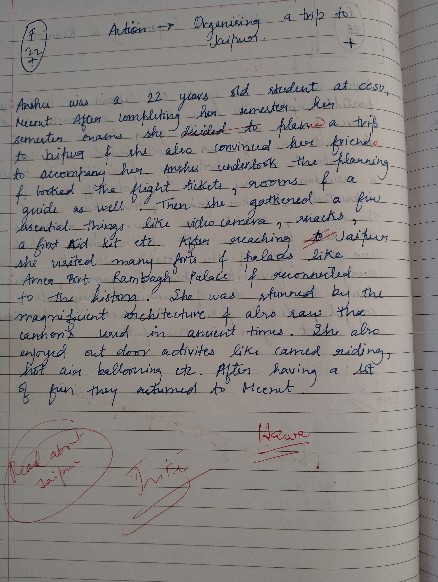 F
22
+
Action → Organising a trip to
Jaipur
+
Anshu was a 22 years old student at CCSU,
Meerut After completing her semester her
semester exams she decided to plan a trip
to Jaipur & she also convinced her friend
to accompany her Anshu undertook the planning
& booked the flight tickets, rooms & a
guide as well. Then she gathered a few
essential things like video camera, snacks,
a first Aid kit etc After reaching to Jaipur
she visited many forts & palaces like
Amer Fort Rambagh Palace & reconnected
to the history. She was stunned by the
magnificent architecture & also saw the
cannons used in ancient times. She also
enjoyed out door activites like camel riding,
hot air ballooning etc. After having a lot
of fun they returned to Meerut
Read about
Jaipur